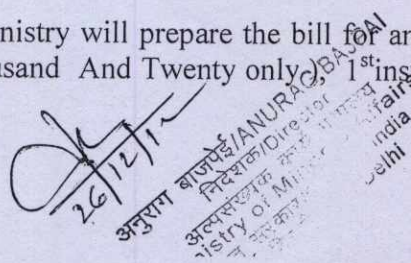 nistry will prepare the bill for an
usand And Twenty only.), 1st ins
26/12/12
अनुराग बाजपेई/ANURAG BAJPAI
निदेशक/Director
अल्पसंख्यक कार्य मंत्रालय
istry of Mi ffairs
सरकार ndia
Delhi